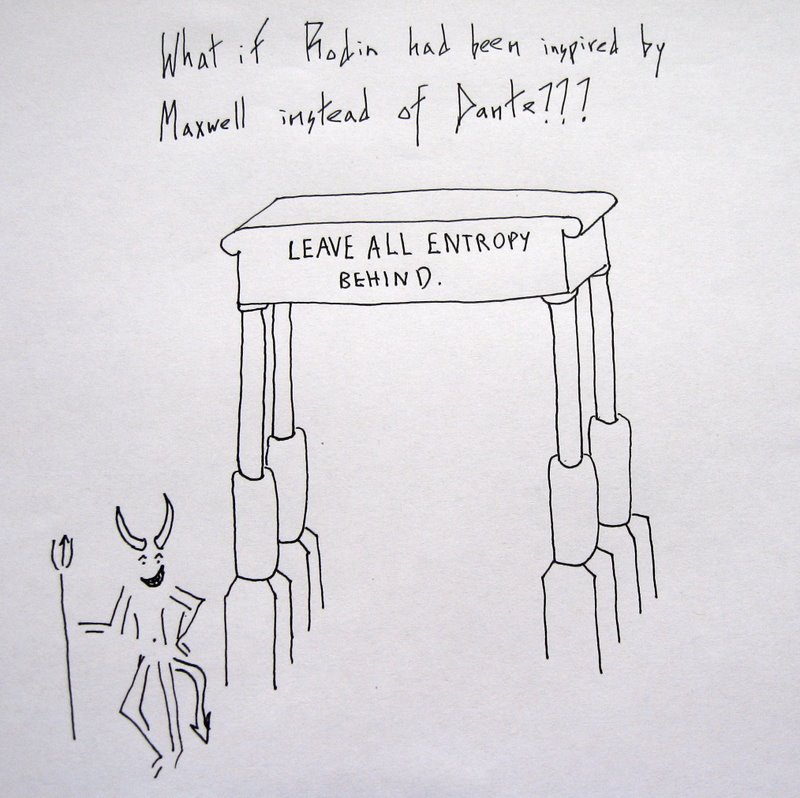 What if Rodin had been inspired by
Maxwell instead of Dante???
LEAVE ALL ENTROPY
BEHIND.